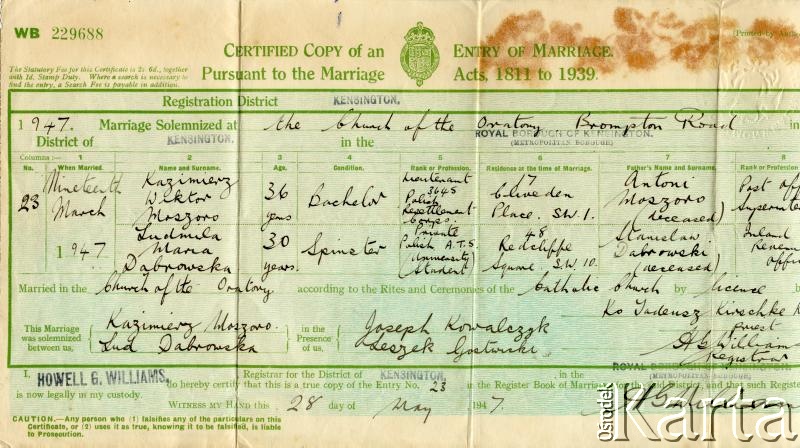 WB 229688
The Statutory Fee for this Certificate is 2s. 6d., together
with 1d. Stamp Duty. Where a search is necessary to
find the entry, a Search Fee is payable in addition.
CERTIFIED COPY of an ENTRY OF MARRIAGE.
Pursuant to the Marriage Acts, 1811 to 1939.
(Printed by
Registration District KENSINGTON.
1947. Marriage Solemnized at the Church of the Oratory Brompton Road in
District of KENSINGTON. in the ROYAL BOROUGH OF KENSINGTON.
(METROPOLITAN BOROUGH)
Columns :— 1 2 3 4 5 6 7 8
No. When Married. Name and Surname. Age. Condition. Rank or Profession. Residence at the time of Marriage. Father's Name and Surname. Rank or Profession
23 Nineteenth March 1947.
Kazimierz Wiktor Moszoro 36 years Bachelor Lieutenant 3645 Polish Resettlement Corps. 17 Cliveden Place. S.W.1. Antoni Moszoro (deceased) Post
Ludmila Maria Dąbrowska 30 years. Spinster Private Polish A.T.S. (University Student) 48 Redcliffe Square, S.W.10. Stanislaw Dabrowski (deceased) Inland
Married in the Church of the Oratory according to the Rites and Ceremonies of the Catholic Church by licence by
This Marriage was solemnized between us, Kazimierz Moszoro. Lud Dabrowska in the Presence of us, Joseph Kowalczyk Leszek
Ks Tadeusz Kirschke
Priest
Registrar
I, HOWELL G. WILLIAMS, Registrar for the District of KENSINGTON, in the ROYAL
(METROPOLITAN BOROUGH)
do hereby certify that this is a true copy of the Entry No. 23 in the Register Book of Marriages for the said District, and that such Register
is now legally in my custody.
WITNESS MY HAND this 28 day of May 1947.
CAUTION.—Any person who (1) falsifies any of the particulars on this
Certificate, or (2) uses it as true, knowing it to be falsified, is liable
to Prosecution.
ośrodek Karta